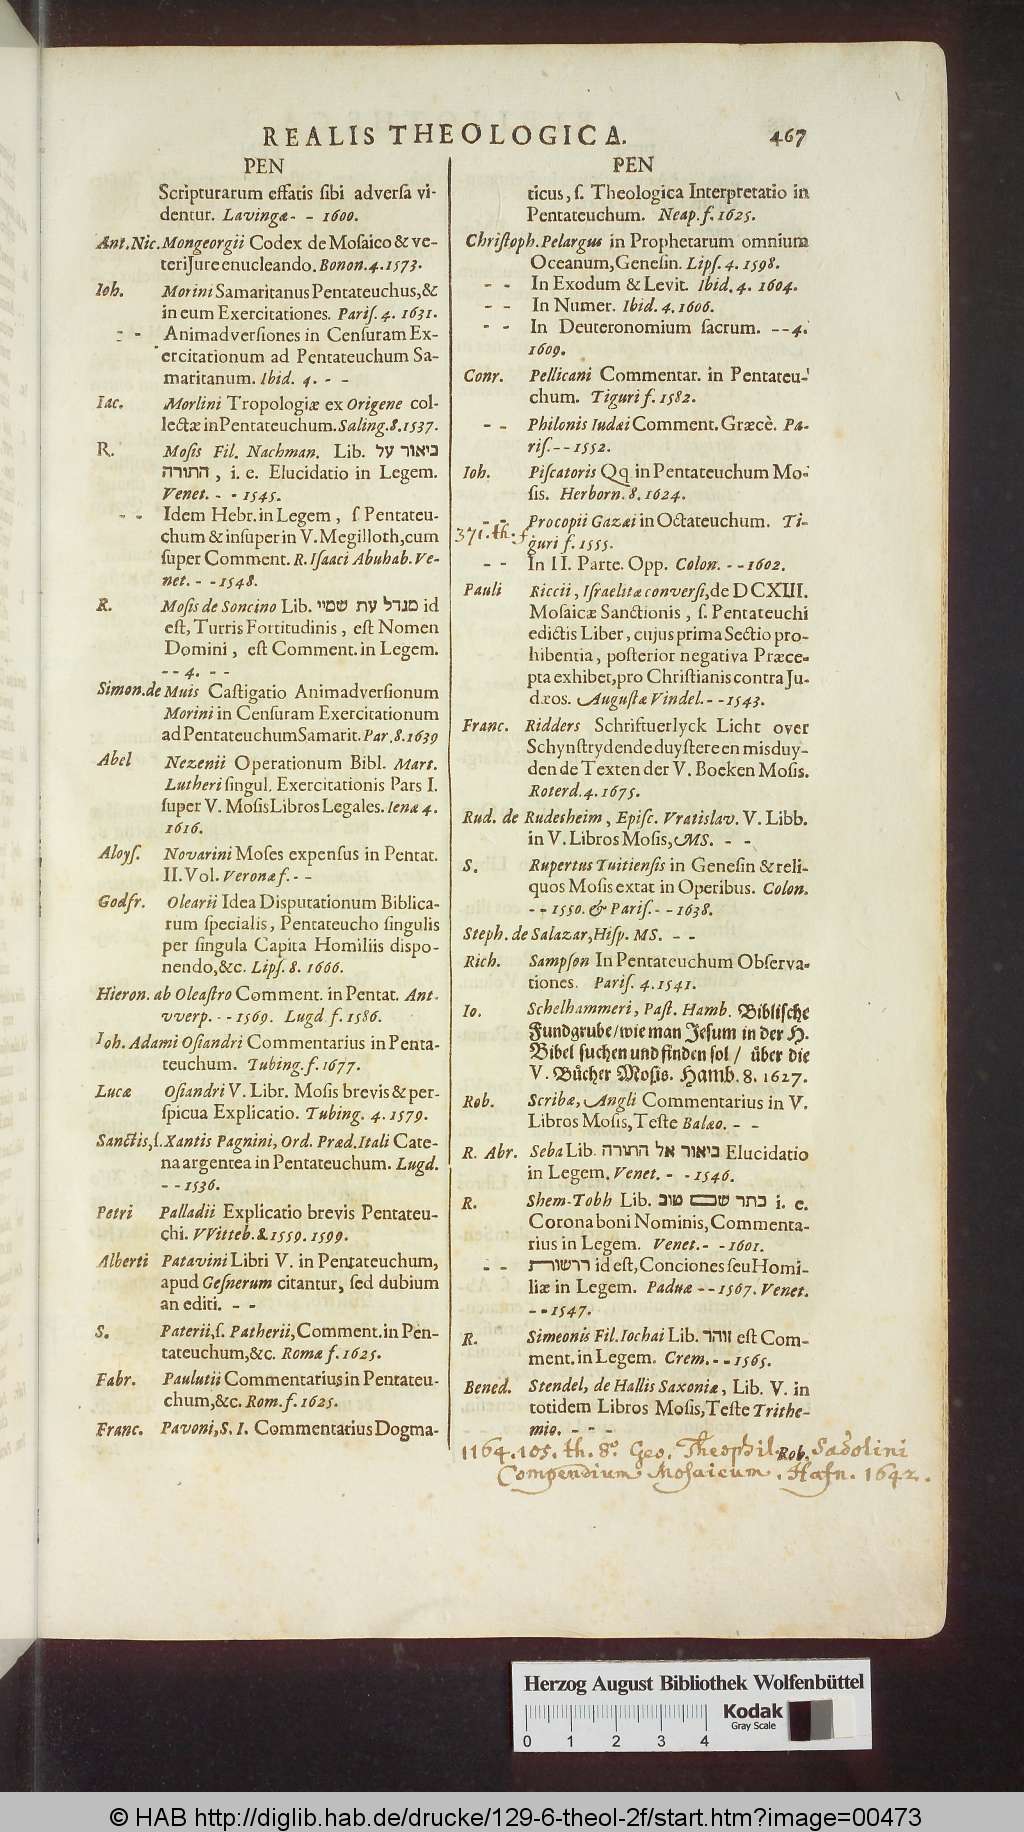 REALIS THEOLOGICA. 467
PEN
Scripturarum effatis sibi adversa vi-
dentur. Lavingæ - - 1600.
Ant. Nic. Mongeorgii Codex de Mosaico & ve-
teri Jure enucleando. Bonon. 4. 1573.
Ioh. Morini Samaritanus Pentateuchus, &
in eum Exercitationes. Paris. 4. 1631.
- - Animadversiones in Censuram Ex-
ercitationum ad Pentateuchum Sa-
maritanum. Ibid. 4. - -
Iac. Morlini Tropologiæ ex Origene col-
lectæ in Pentateuchum. Saling. 8. 1537.
R. Mosis Fil. Nachman. Lib. ביאור על
התורה, i. e. Elucidatio in Legem.
Venet. - - 1545.
- - Idem Hebr. in Legem, ſ Pentateu-
chum & insuper in V. Megilloth, cum
super Comment. R. Isaaci Abuhab. Ve-
net. - - 1548.
R. Mosis de Soncino Lib. מגדל עת שמיי id
est, Turris Fortitudinis, est Nomen
Domini, est Comment. in Legem.
- - 4. - -
Simon. de Muis Castigatio Animadversionum
Morini in Censuram Exercitationum
ad Pentateuchum Samarit. Par. 8. 1639
Abel Nezenii Operationum Bibl. Mart.
Lutheri singul. Exercitationis Pars I.
super V. Mosis Libros Legales. Ienæ 4.
1616.
Aloys. Novarini Moses expensus in Pentat.
II. Vol. Veronæ f. - -
Godfr. Olearii Idea Disputationum Biblica-
rum specialis, Pentateucho singulis
per singula Capita Homiliis dispo-
nendo, &c. Lips. 8. 1666.
Hieron. ab Oleastro Comment. in Pentat. Ant-
vverp. - - 1569. Lugd f. 1586.
Ioh. Adami Osiandri Commentarius in Penta-
teuchum. Tubing. f. 1677.
Lucæ Osiandri V. Libr. Mosis brevis & per-
spicua Explicatio. Tubing. 4. 1579.
Sanctis, ſ. Xantis Pagnini, Ord. Præd. Itali Cate-
na argentea in Pentateuchum. Lugd.
- - 1536.
Petri Palladii Explicatio brevis Pentateu-
chi. VVitteb. 8. 1559. 1599.
Alberti Patavini Libri V. in Pentateuchum,
apud Gesnerum citantur, sed dubium
an editi. - -
S. Paterii, ſ. Patherii, Comment. in Pen-
tateuchum, &c. Romæ f. 1625.
Fabr. Paulutii Commentarius in Pentateu-
chum, &c. Rom. f. 1625.
Franc. Pavoni, S. I. Commentarius Dogma-
PEN
ticus, ſ. Theologica Interpretatio in
Pentateuchum. Neap. f. 1625.
Christoph. Pelargus in Prophetarum omnium
Oceanum, Genesin. Lips. 4. 1598.
- - In Exodum & Levit. Ibid. 4. 1604.
- - In Numer. Ibid. 4. 1606.
- - In Deuteronomium sacrum. - - 4.
1609.
Conr. Pellicani Commentar. in Pentateu-
chum. Tiguri f. 1582.
- - Philonis Iudæi Comment. Græcè. Pa-
ris. - - 1552.
Ioh. Piscatoris Qq in Pentateuchum Mo-
sis. Herborn. 8. 1624.
- - Procopii Gazæi in Octateuchum. Ti-
371. th. f. guri f. 1555.
- - In II. Parte. Opp. Colon. - - 1602.
Pauli Riccii, Israelitæ conversi, de DCXIII.
Mosaicæ Sanctionis, ſ. Pentateuchi
edictis Liber, cujus prima Sectio pro-
hibentia, posterior negativa Præce-
pta exhibet, pro Christianis contra Ju-
dæos. Augustæ Vindel. - - 1543.
Franc. Ridders Schriftuerlyck Licht over
Schynstrydende duystere en misduy-
den de Texten der V. Boeken Mosis.
Roterd. 4. 1675.
Rud. de Rudesheim, Episc. Vratislav. V. Libb.
in V. Libros Mosis, MS. - -
S. Rupertus Tuitiensis in Genesin & reli-
quos Mosis extat in Operibus. Colon.
- - 1550. & Paris. - - 1638.
Steph. de Salazar, Hisp. MS. - -
Rich. Sampson In Pentateuchum Observa-
tiones. Paris. 4. 1541.
Io. Schelhammeri, Past. Hamb. Biblische
Fundgrube/ wie man Jesum in der H.
Bibel suchen und finden sol/ über die
V. Bücher Mosis. Hamb. 8. 1627.
Rob. Scribæ, Angli Commentarius in V.
Libros Mosis, Teste Balæo. - -
R. Abr. Seba Lib. ביאור אל התורה Elucidatio
in Legem. Venet. - - 1546.
R. Shem-Tobh Lib. כתר שם טוב i. e.
Corona boni Nominis, Commenta-
rius in Legem. Venet. - - 1601.
- - דרשות id est, Conciones seu Homi-
liæ in Legem. Paduæ - - 1567. Venet.
- - 1547.
R. Simeonis Fil. Iochai Lib. זוהר est Com-
ment. in Legem. Crem. - - 1565.
Bened. Stendel, de Hallis Saxoniæ, Lib. V. in
totidem Libros Mosis, Teste Trithe-
mio. - - -
Rob.
1164.105. th. 8º. Geo. Theophil. Sadolini
Compendium Mosaicum. Hafn. 1642.
Herzog August Bibliothek Wolfenbüttel
0 1 2 3 4
Kodak
Gray Scale
© HAB http://diglib.hab.de/drucke/129-6-theol-2f/start.htm?image=00473